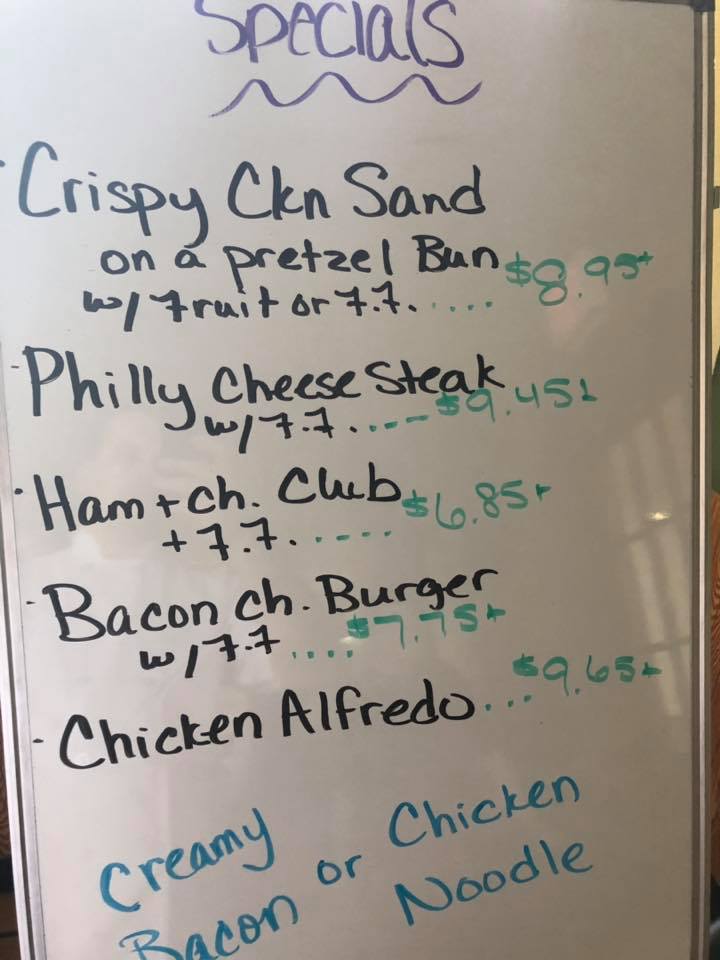 Specials
Crispy Ckn Sand
on a pretzel Bun $8.95+
w/ Fruit or F.F. ....
- Philly Cheese Steak
w/ F.F. ..--- $9.45+
· Ham + ch. Club
+ F.F. ..... $6.85+
- Bacon ch. Burger
w/ F.F .... $7.75+
- Chicken Alfredo... $9.65+
Creamy or Chicken
Bacon Noodle